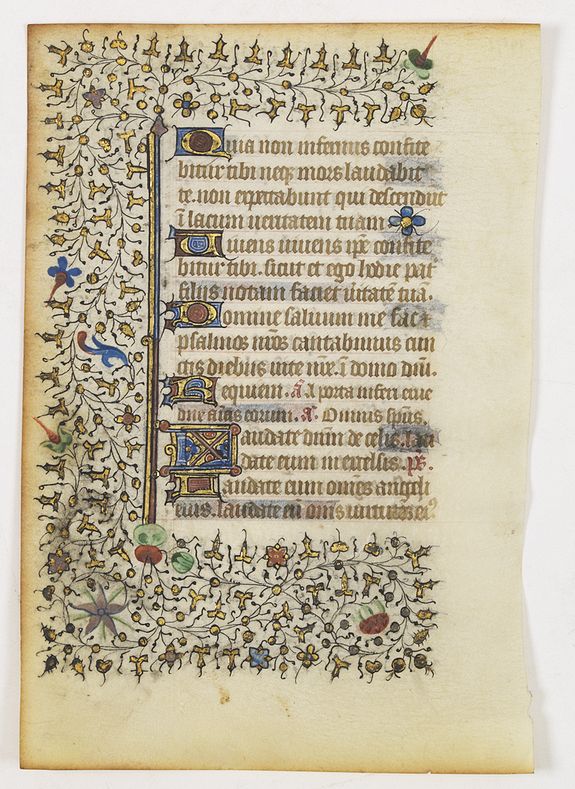 Quia non infernus confite
bitur tibi neq mors laudabit
te. non expectabunt qui descendūt
ī lacum ueritatem tuam
Uiuens uiuens ipē confite
bitur tibi. sicut et ego hodie pat
filiis notam faciet ūitatē tuā.
Domine saluum me fac a
psalmos nr̄os cantabimus cun
ctis diebus uite nr̄e. ī domo dn̄i.
Requiem. a. A porta inferi erue
dn̄e aīas eorum. a. Omnis sp̄us.
Laudate dn̄m de celis. lau
date eum in excelsis. ps.
Laudate eum om̄es angeli
eius. laudate eū om̄s uirtutes ei9